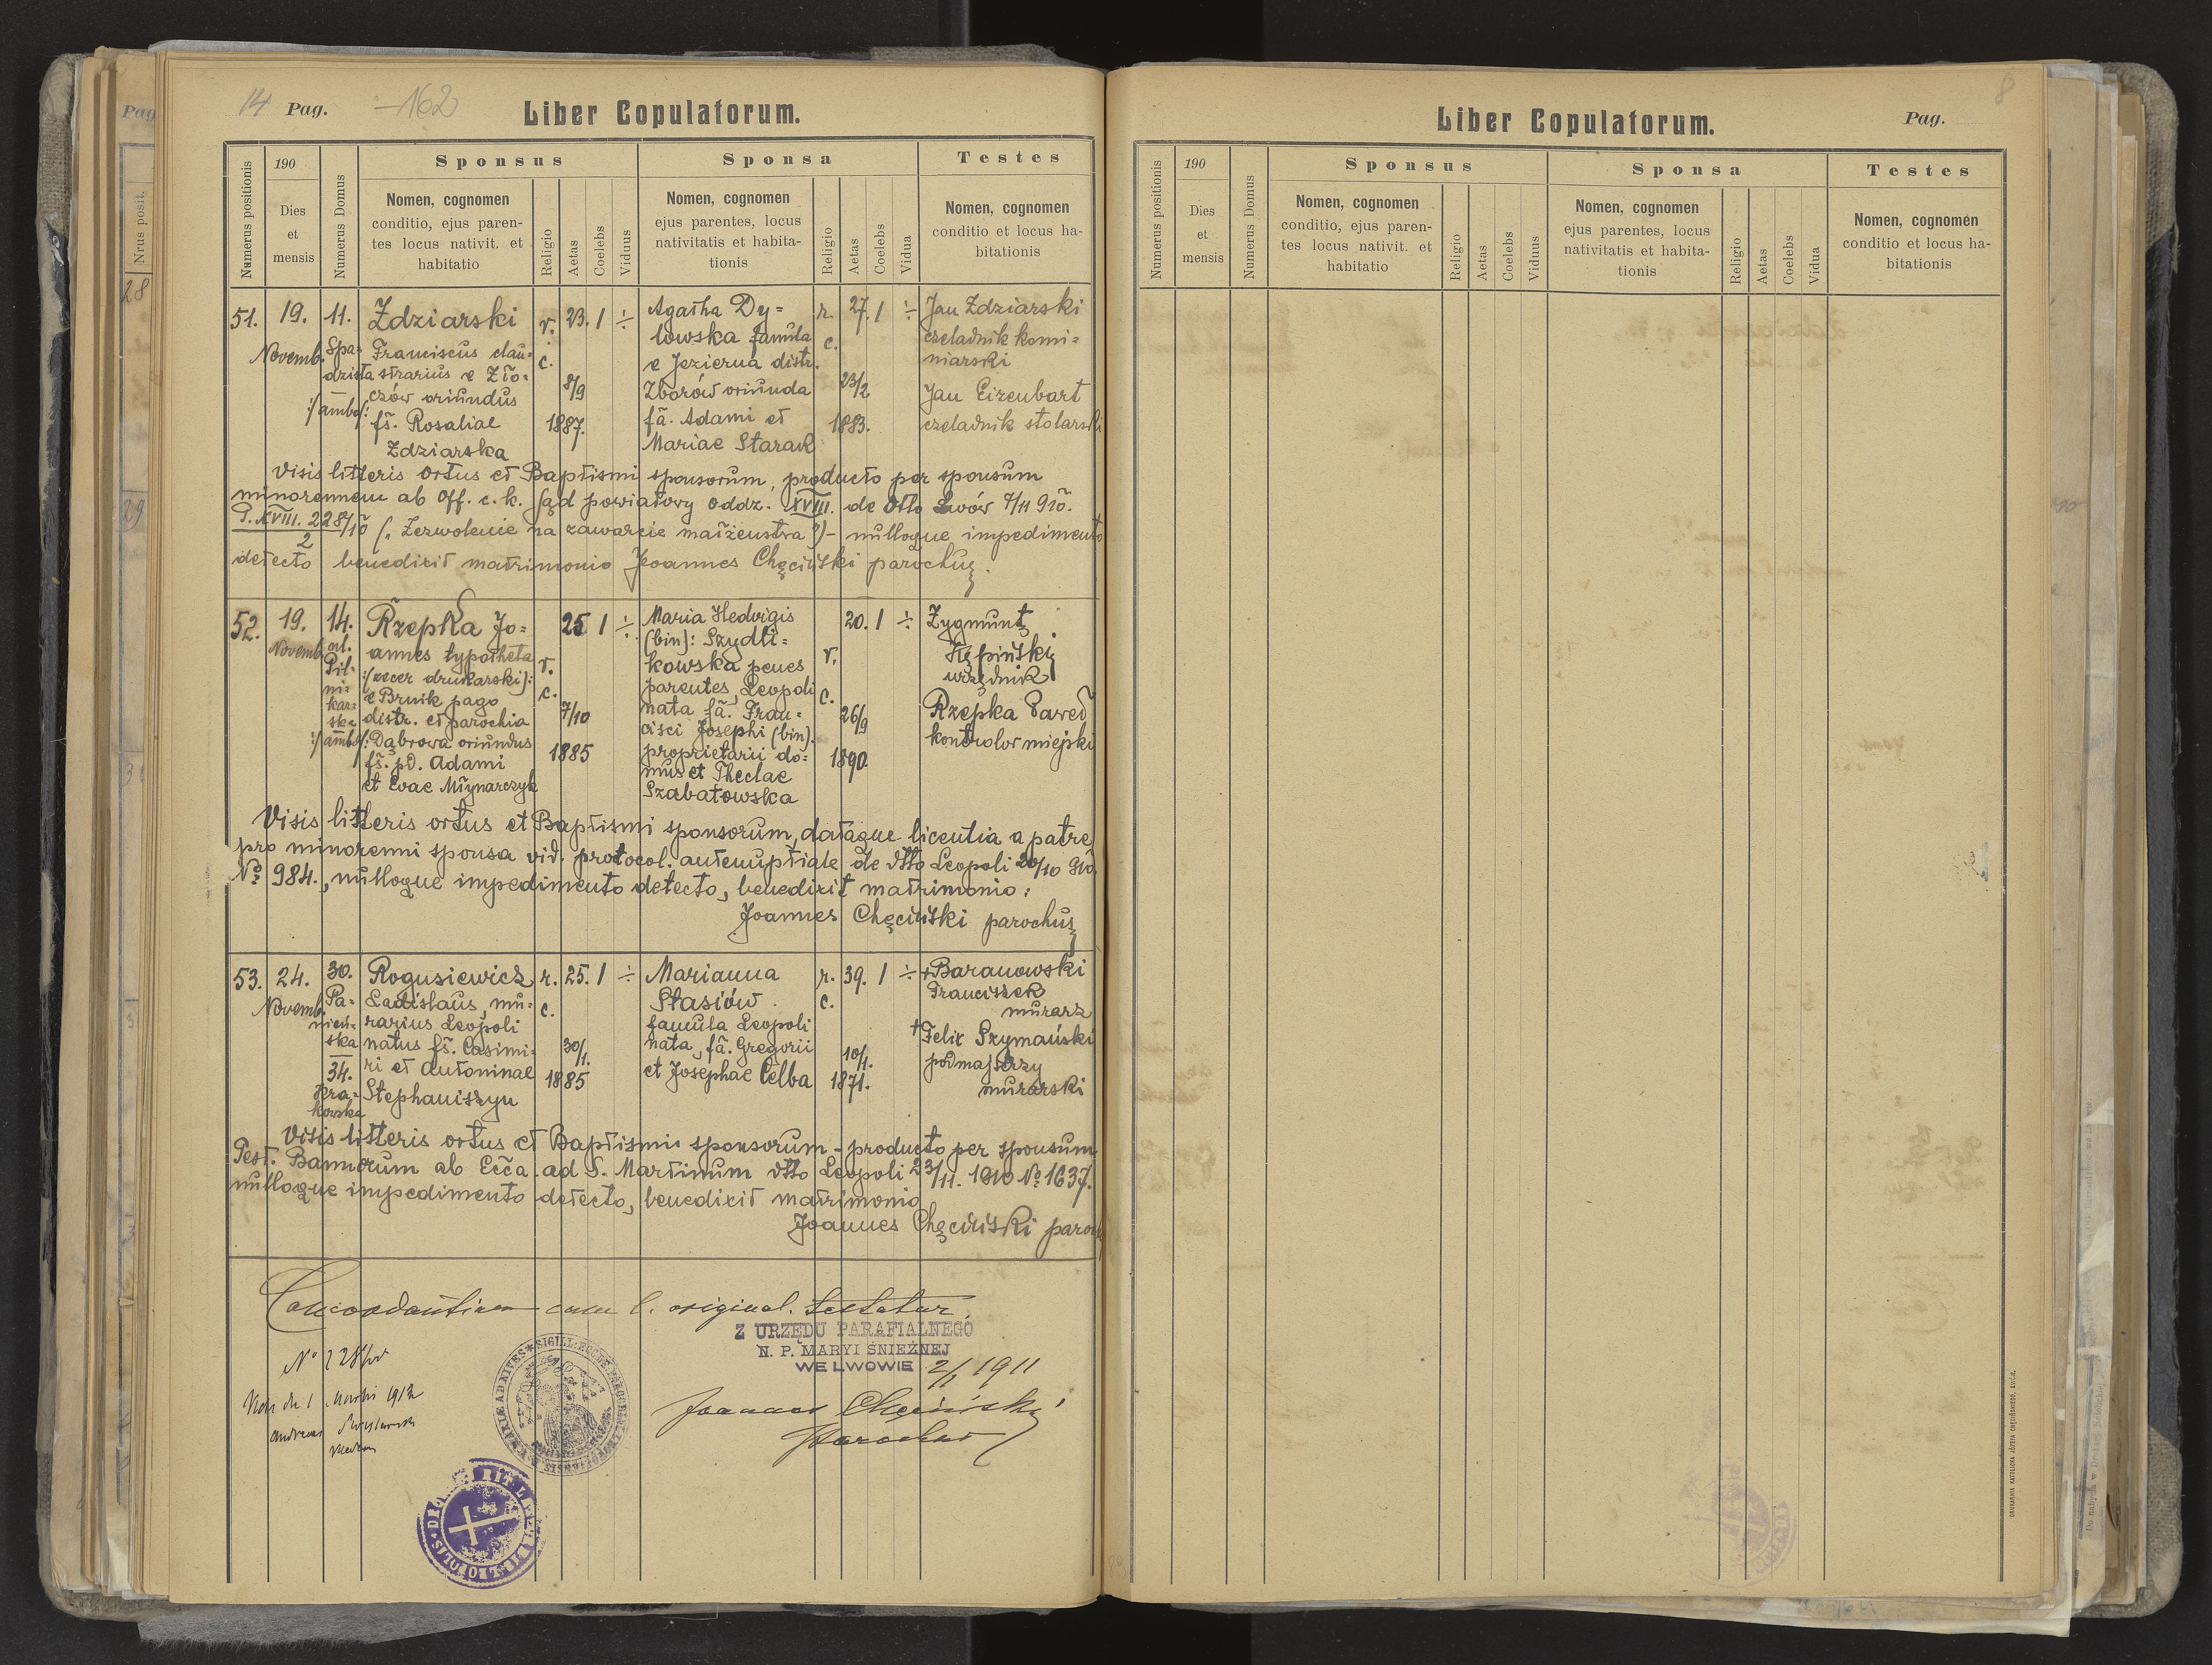 14 Pag. -162
Liber Copulatorum.
Numerus positionis
190
Dies
et
mensis
Numerus Domus
Sponsus
Nomen, cognomen
conditio, ejus paren-
tes locus nativit. et
habitatio
Religio
Aetas
Coelebs
Viduus
Sponsa
Nomen, cognomen
ejus parentes, locus
nativitatis et habita-
tionis
Religio
Aetas
Coelebs
Vidua
Testes
Nomen, cognomen
conditio et locus ha-
bitationis
51.
19.
Novemb.
11.
Spa=
dzista
:/ambo/:
Zdziarski
Franciscus clau=
strarius e Zło=
czów oriundus
fs. Rosaliae
Zdziarska
r.
c.
23.
8/9
1887.
1
÷
Agatha Dy=
lowska famula
e Jezierna distr.
Zborów oriunda
fa. Adami et
Mariae Starak
r.
c.
27.
23/2
1883.
1
÷
Jan Zdziarski
czeladnik komi=
niarski
Jan Eizenbart
czeladnik stolarski
Visis litteris ortus et Baptismi sponsorum, producto per sponsum
minorennem ab Off. c. k. Sąd powiatowy Oddz. XVIII. de dtto Lwów 7/11 910.
P. XVIII. 228/10
2
(„Zezwolenie na zawarcie małżeństwa") – nulloque impedimento
detecto benedixit matrimonio Joannes Chęciński parochus.
52.
19.
Novemb.
14.
ul.
Pił=
ni=
kar=
ska
:/ambo/:
Rzepka Jo=
annes typotheta
:/zecer drukarski/:
e Brnik pago
distr. et parochia
Dąbrowa oriundus
fs. pd. Adami
et Evae Młynarczyk
r.
c.
25
7/10
1885
1
÷
Maria Hedvigis
(bin): Szydli=
kowska penes
parentes, Leopoli
nata fa. Fran=
cisci Josephi (bin).
proprietarii do=
mus et Theclae
Szabatowska
r.
c.
20.
26/9
1890.
1
÷
Zygmunt
Kępiński
urzędnik
Rzepka Paweł
kontrolor miejski
Visis litteris ortus et Baptismi sponsorum, dataque licentia a patre
pro minorenni sponsa vid. protocol. antenuptiale de dtto Leopoli 20/10 910.
No 984., nulloque impedimento detecto, benedixit matrimonio:
Joannes Chęciński parochus
53.
24.
Novemb.
30.
Pa=
nień=
ska
34.
Kra=
kowska
Rogusiewicz
Ladislaus, mu=
rarius Leopoli
natus fs. Casimi=
ri et Antoninae
Stephaniszyn
r.
c.
25.
30/1.
1885
1
÷
Marianna
Stasiów.
famula Leopoli
nata, fa. Gregorii
et Josephae Celba
r.
c.
39.
10/1.
1871.
1
÷
+Baranowski
Franciszek
murarz
+Felix Szymański
podmajstrzy
murarski
Visis litteris ortus et Baptismi sponsorum – producto per sponsum
Test. Bannorum ab Ecca. ad S. Martinum dtto Leopoli 23/11. 1910 No 1637.
nulloque impedimento detecto, benedixit matrimonio
Joannes Chęciński paroch
Concordantiam cum l. original. testatur
Z URZĘDU PARAFIALNEGO
N. P. MARYI ŚNIEŻNEJ
WE LWOWIE 2/1 1911
Joannes Chęciński
Parochus
1912
Liber Copulatorum.
Pag.
8
Numerus positionis
190
Dies
et
mensis
Numerus Domus
Sponsus
Nomen, cognomen
conditio, ejus paren-
tes locus nativit. et
habitatio
Religio
Aetas
Coelebs
Viduus
Sponsa
Nomen, cognomen
ejus parentes, locus
nativitatis et habita-
tionis
Religio
Aetas
Coelebs
Vidua
Testes
Nomen, cognomen
conditio et locus ha-
bitationis
DRUKARNIA KATOLICKA JÓZEFA CHĘCIŃSKIEGO, LWÓW.
Pag
Nrus posit.
28
29